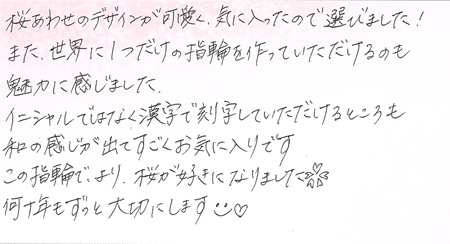 桜あわせのデザインが可愛く、気に入ったので選びました！
また、世界に1つだけの指輪を作っていただけるのも
魅力に感じました。
イニシャルではなく漢字で刻字していただけるところも
和の感じが出てすごくお気に入りです
この指輪で、より、桜が好きになりました
何十年もずっと大切にします